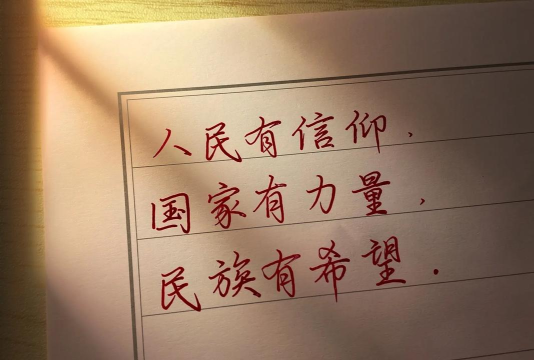 人民有信仰，
国家有力量，
民族有希望．